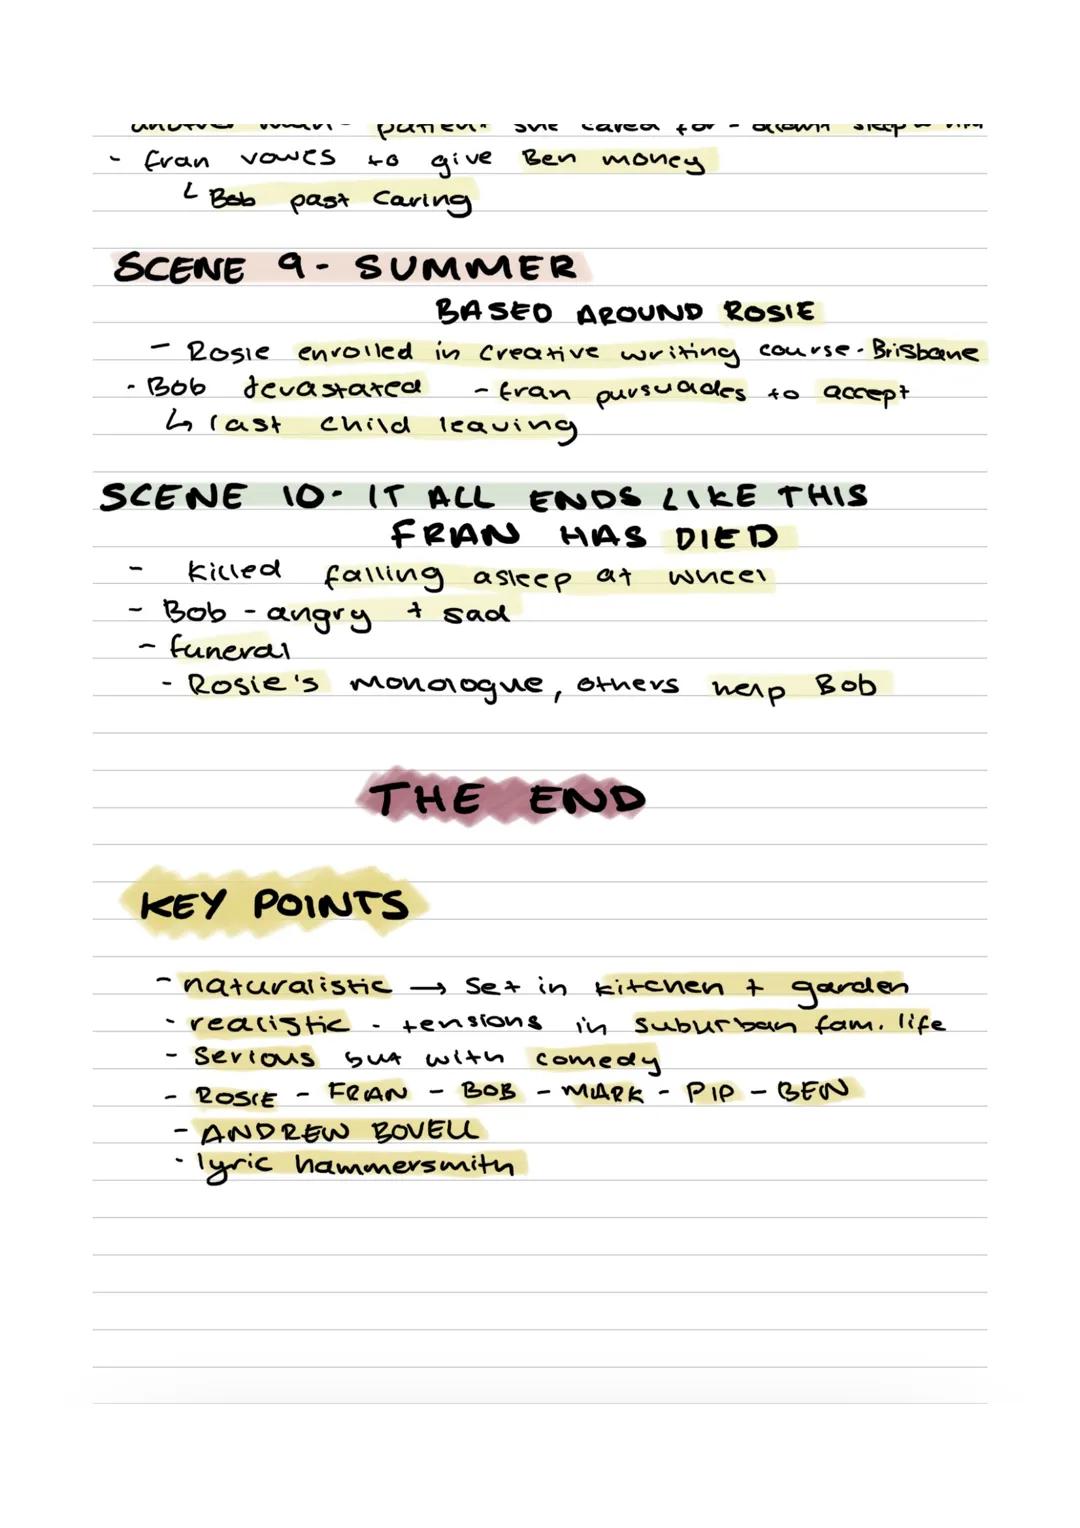 another man - patient she cared for - didn't sleep w him
- fran vowes to give Ben money
↳ Bob past caring
SCENE 9 - SUMMER
BASED AROUND ROSIE
- Rosie enrolled in creative writing course - Brisbane
- Bob devastated - fran pursuades to accept
↳ last child leaving
SCENE 10 - IT ALL ENDS LIKE THIS
FRAN HAS DIED
- killed falling asleep at wheel
- Bob - angry + sad
- funeral
- Rosie's monologue, others help Bob
THE END
KEY POINTS
- naturalistic → set in kitchen + garden
- realistic - tensions in suburban fam. life
- serious but with comedy
- ROSIE - FRAN - BOB - MARK - PIP - BEN
- ANDREW BOVELL
- lyric hammersmith